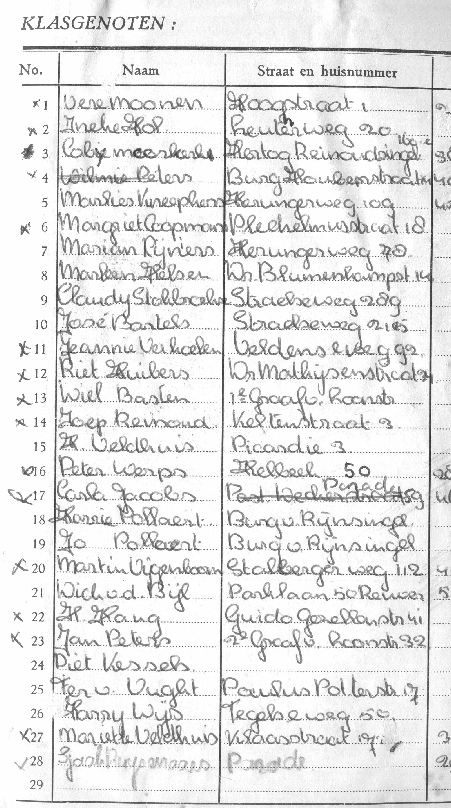 KLASGENOTEN :
No. Naam Straat en huisnummer
x 1 Vere Moonen Hoogstraat 1
x 2 Ineke Hof Leutherweg 20
3 Hertog Reinoudsingel
4 Wilmie Peters Burg
5 Marlies Herungerweg 109
x 6 Margriet Coopmans Plechelmusstraat 18
7 Marian Rijniers Herungerweg 70
8 Marleen Helsen Dr. Blumenkampst 14
9 Claudy Straelseweg 289
10 José Bartels Straelseweg 215
x 11 Jeannie Verhaelen Veldenseweg 92
x 12 Riet Huibers Dr Mathijsenstraat
x 13 Wiel Basten 1e Graaf v. Loonstr
x 14 Joep Reinoud Keltenstraat 3
15 H. Veldhuis Picardie 3
16 Peter Werps Helbeek 50
x 17 Carla Jacobs Parade
18 Harrie Pollaert Burg v Rijnsingel
19 Jo Pollaert Burg v. Rijnsingel
x 20 Martin Stalbergerweg 112
21 Wich v.d. Bijl Parklaan 50 Reuver
x 22 H. Haug Guido Gezellenstr 41
x 23 Jan Peters 2e Graaf v. Loonstr 32
24 Piet Vessels
25 Ter v. Vught Paulus Potterstr 17
26 Harry Wijs Tegelseweg 50
x 27 Mariette Veldhuis Klaasstraat 17
28 Parade
29